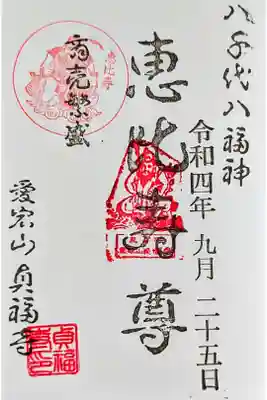 八千代八福神
令和四年 九月 二十五日
恵比寿尊
恵比寿
商売繁盛
愛宕山 貞福寺
貞福寺印